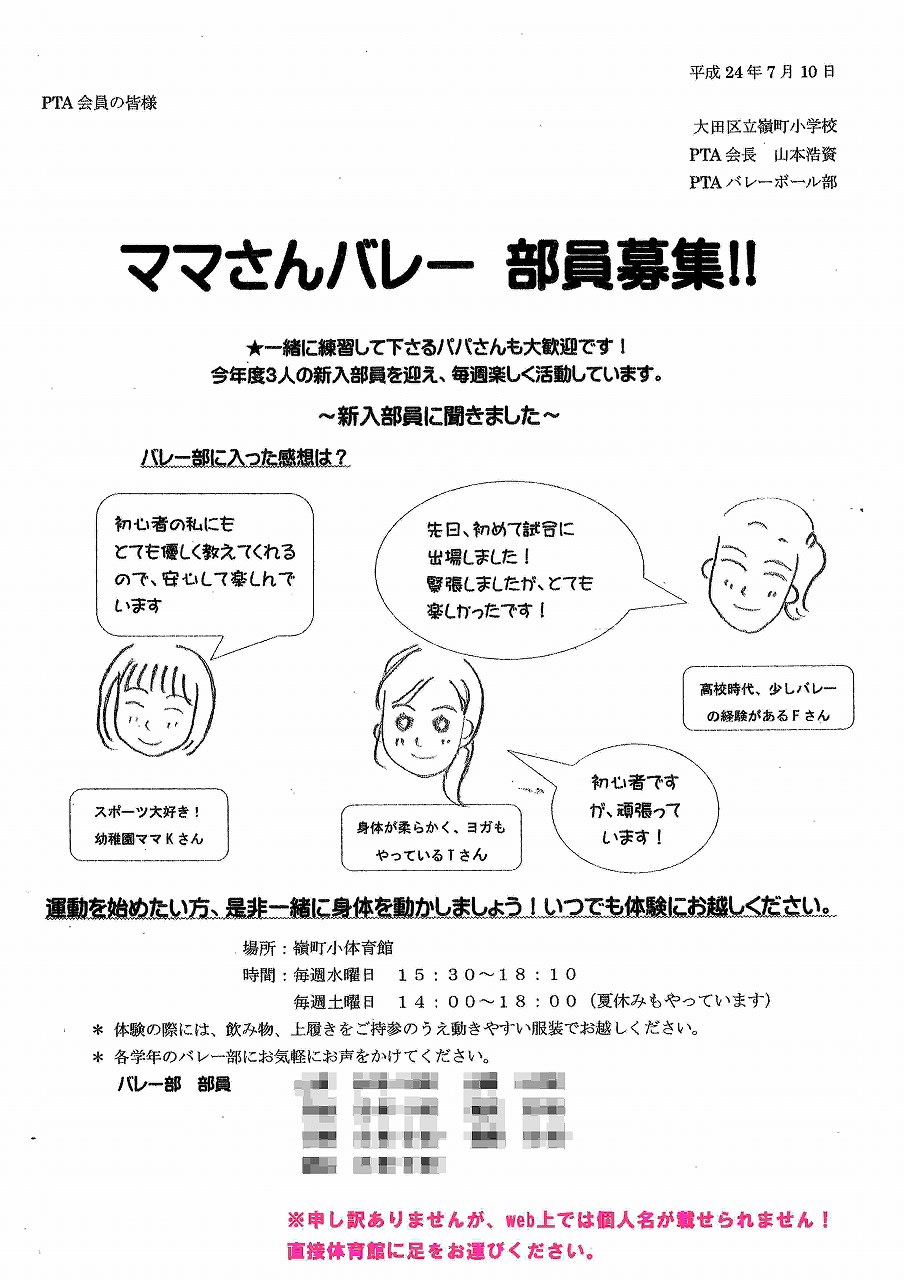 平成24年7月10日
PTA会員の皆様
大田区立嶺町小学校
PTA会長　山本浩資
PTAバレーボール部
ママさんバレー 部員募集!!
★一緒に練習して下さるパパさんも大歓迎です！
今年度3人の新入部員を迎え、毎週楽しく活動しています。
～新入部員に聞きました～
バレー部に入った感想は？
初心者の私にも
とても優しく教えてくれる
ので、安心して楽しんで
います
先日、初めて試合に
出場しました！
緊張しましたが、とても
楽しかったです！
高校時代、少しバレー
の経験があるFさん
初心者です
が、頑張って
います！
スポーツ大好き！
幼稚園ママKさん
身体が柔らかく、ヨガも
やっているTさん
運動を始めたい方、是非一緒に身体を動かしましょう！いつでも体験にお越しください。
場所：嶺町小体育館
時間：毎週水曜日　１５：３０～１８：１０
毎週土曜日　１４：００～１８：００（夏休みもやっています）
＊ 体験の際には、飲み物、上履きをご持参のうえ動きやすい服装でお越しください。
＊ 各学年のバレー部にお気軽にお声をかけてください。
バレー部　部員
※申し訳ありませんが、web上では個人名が載せられません！
直接体育館に足をお運びください。